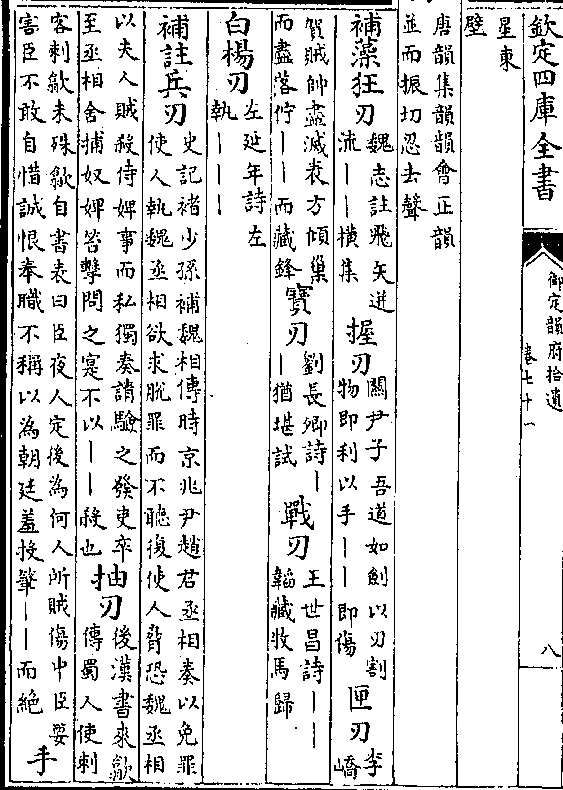 欽定四庫全書
御定韻府拾遺
卷七十一
八
星東
壁
唐韻集韻韻會正韻
並而振切忍去聲
補藻狂刃
魏志註飛矢迸
流｜｜橫集
握刃
關尹子吾道如劍以刃割
物即利以手｜｜即傷
匣刃
李
嶠
賀賊帥盡滅表方傾巢
而盡落佇｜｜而藏鋒
寶刃
劉長卿詩｜
｜猶堪試
戰刃
王世昌詩｜｜
韜藏牧馬歸
白楊刃
左延年詩左
執｜｜｜
補註兵刃
史記褚少孫補魏相傳時京兆尹趙君丞相奏以免罪
使人執魏丞相欲求脫罪而不聽復使人脅恐魏丞相
以夫人賊殺侍婢事而私獨奏請驗之發吏卒
至丞相舍捕奴婢笞擊問之寔不以｜｜殺也
抽刃
後漢書來歙
傳蜀人使刺
客刺歙未殊歙自書表曰臣夜人定後為何人所賊傷中臣要
害臣不敢自惜誠恨奉職不稱以為朝廷羞投筆｜｜而絕
手